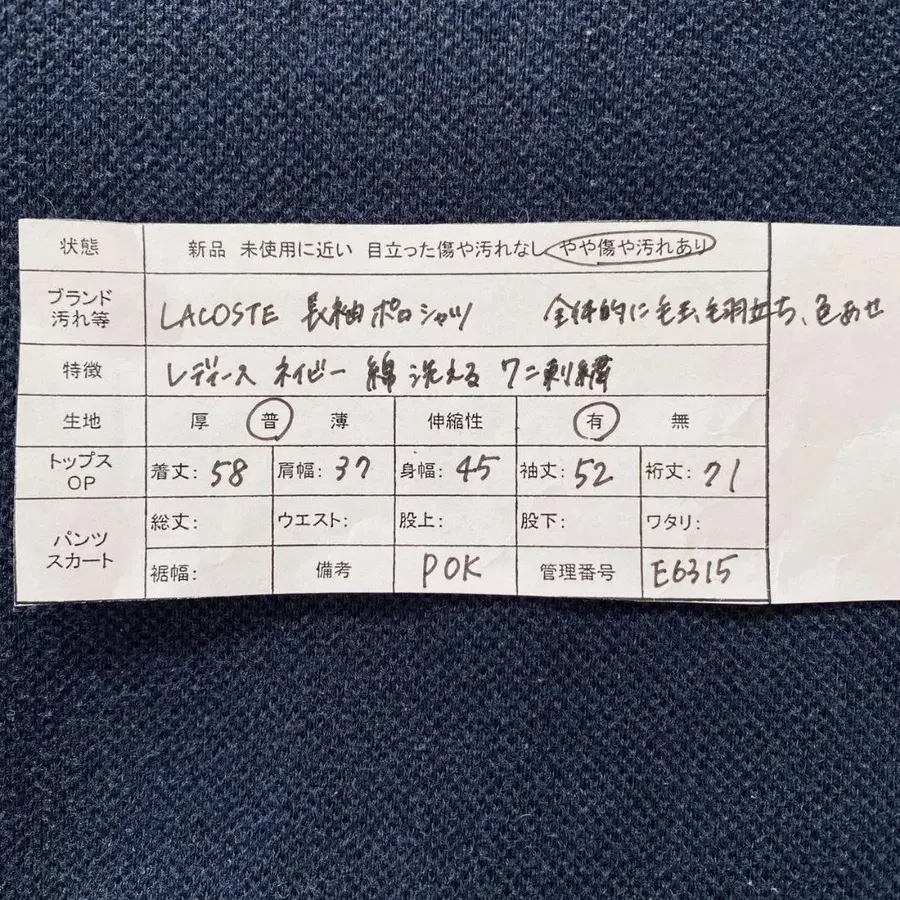 状態 新品 未使用に近い 目立った傷や汚れなし やや傷や汚れあり
ブランド
汚れ等 LACOSTE 長袖ポロシャツ 全体的に毛玉、毛羽立ち、色あせ
特徴 レディース ネイビー 綿 洗える ワニ刺繍
生地 厚 普 薄 伸縮性 有 無
トップス
OP 着丈: 58 肩幅: 37 身幅: 45 袖丈: 52 裄丈: 71
パンツ
スカート 総丈: ウエスト: 股上: 股下: ワタリ:
裾幅: 備考 POK 管理番号 E6315